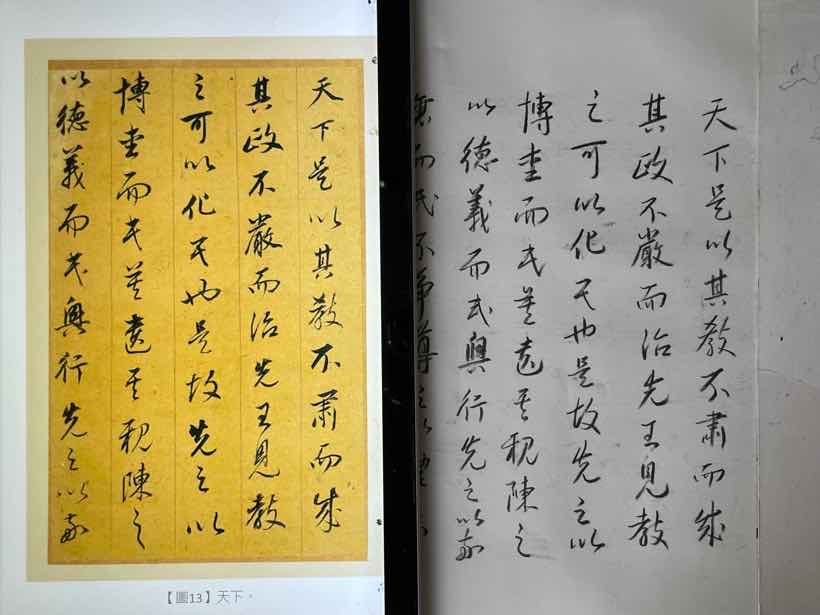 天下是以其教不肅而成
其政不嚴而治先王見教
之可以化民也是故先之以
博愛而民莫遺其親陳之
以德義而民興行先之以敬
【圖13】天下。
天下是以其教不肅而成
其政不嚴而治先王見教
之可以化民也是故先之以
博愛而民莫遺其親陳之
以德義而民興行先之以敬
而民不爭導之以